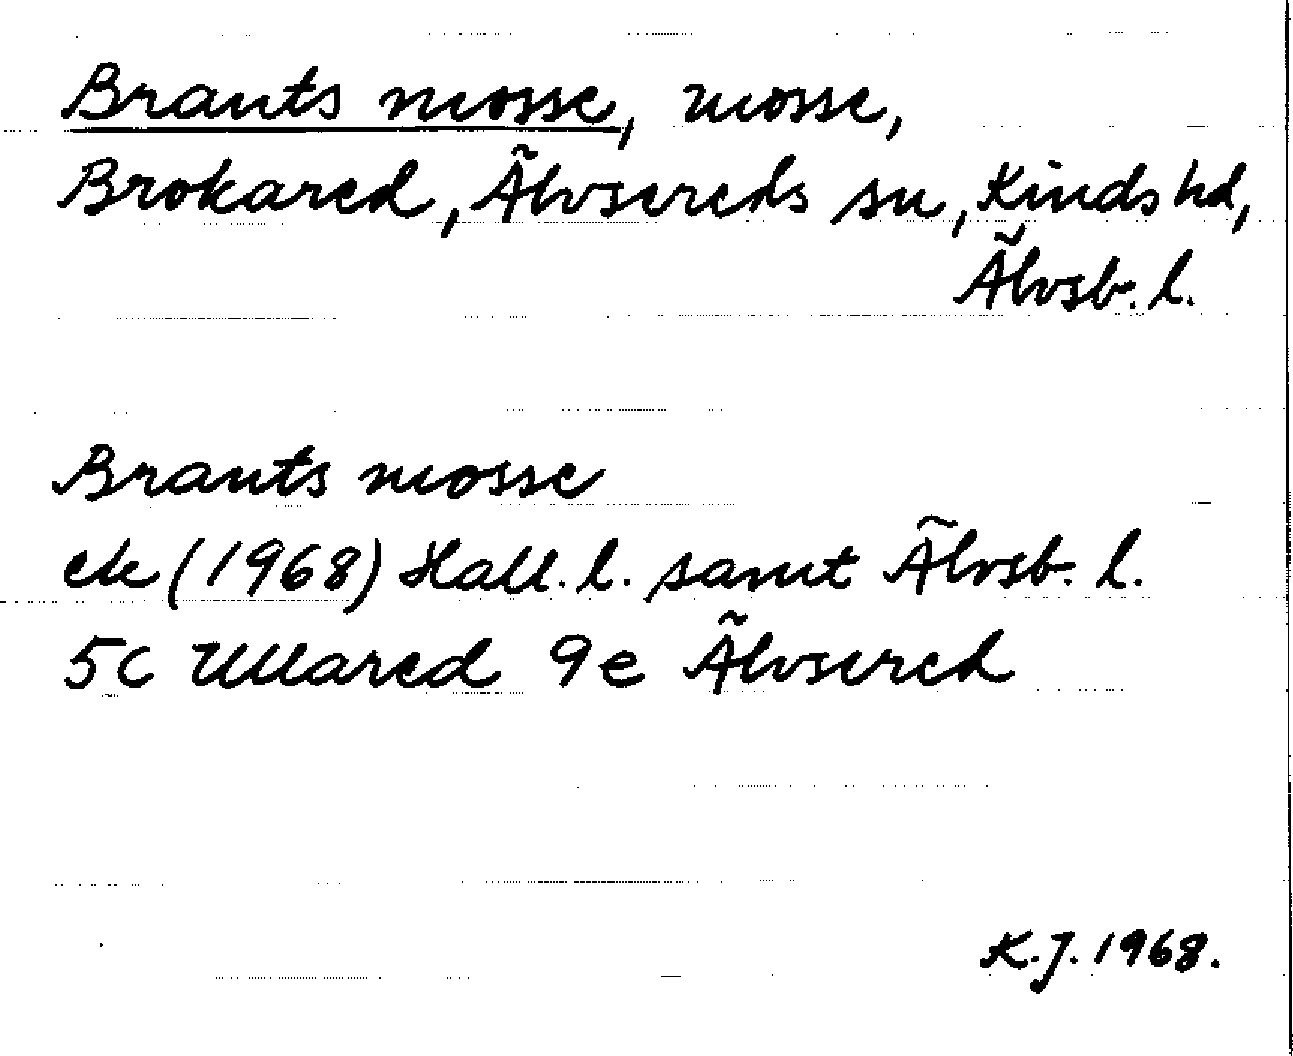 Brants mosse, mosse,
Brokared, Älvsereds sn, Kinds hd,
Älvsb. l.
Brants mosse
ek (1968) Hall. l. samt Älvsb. l.
5c Ullared 9e Älvsered
K.J. 1968.